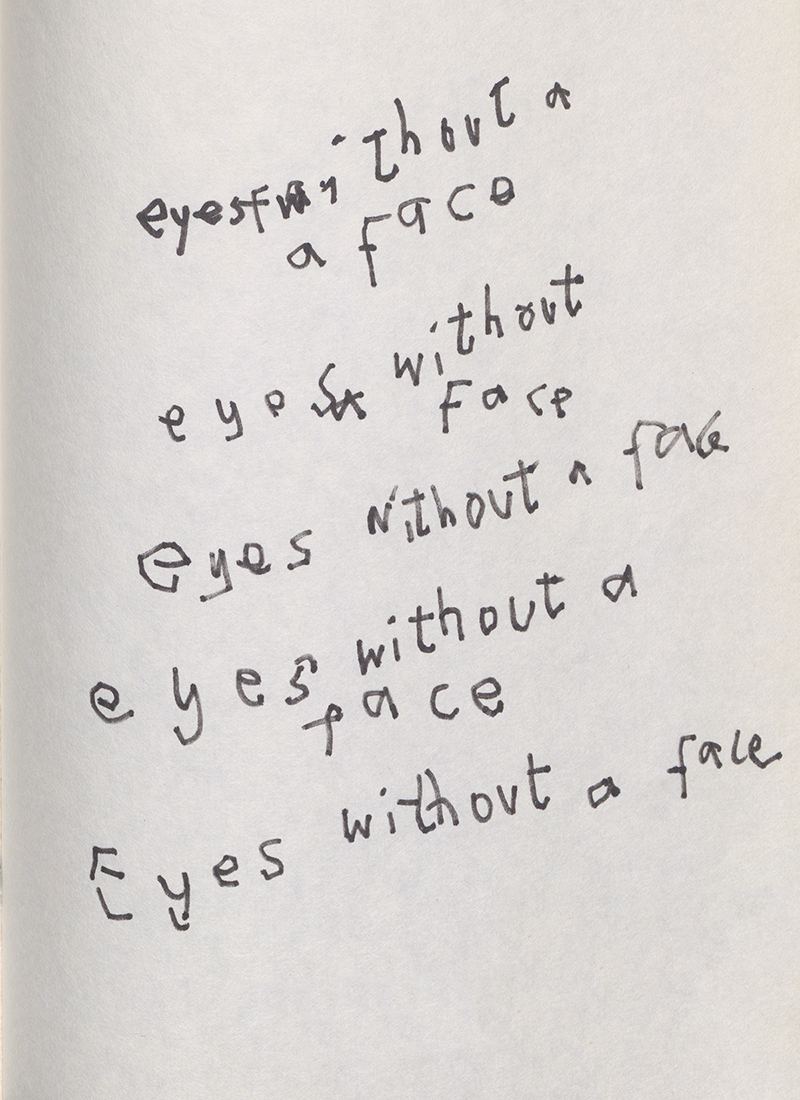 eyes without a
a face
eyes without
face
eyes without a face
eyes without a
face
Eyes without a face